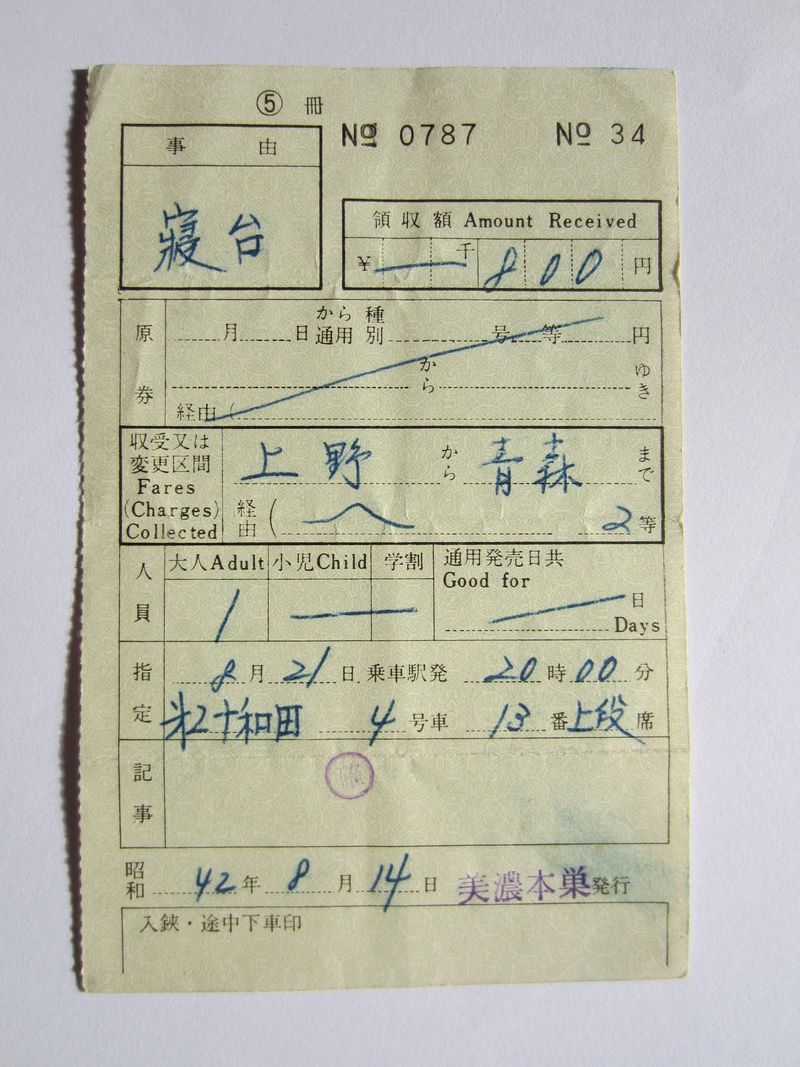 ⑤ 冊
事由
№ 0787 № 34
寝台
領収額 Amount Received
¥ 千 800 円
原券
月 日 から通用 種別 号 等 円
から ゆき
経由(
収受又は変更区間
Fares (Charges) Collected
上野 から 青森 まで
経由( 2等
人員
大人Adult 小児Child 学割
1
通用発売日共
Good for
日
Days
指定
8月21日 乗車駅発 20時00分
十和田 4号車 13番上段席
記事
昭和 42年 8月 14日 美濃本巣発行
入鋏・途中下車印